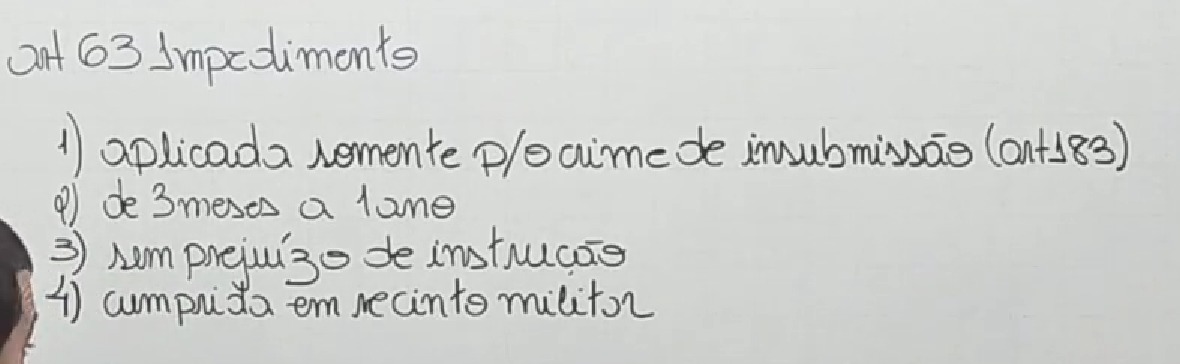 art 63 Impedimento
1) aplicada somente p/o crime de insubmissão (art183)
2) de 3 meses a 1 ano
3) sem prejuízo de instrução
4) cumprida em recinto militar